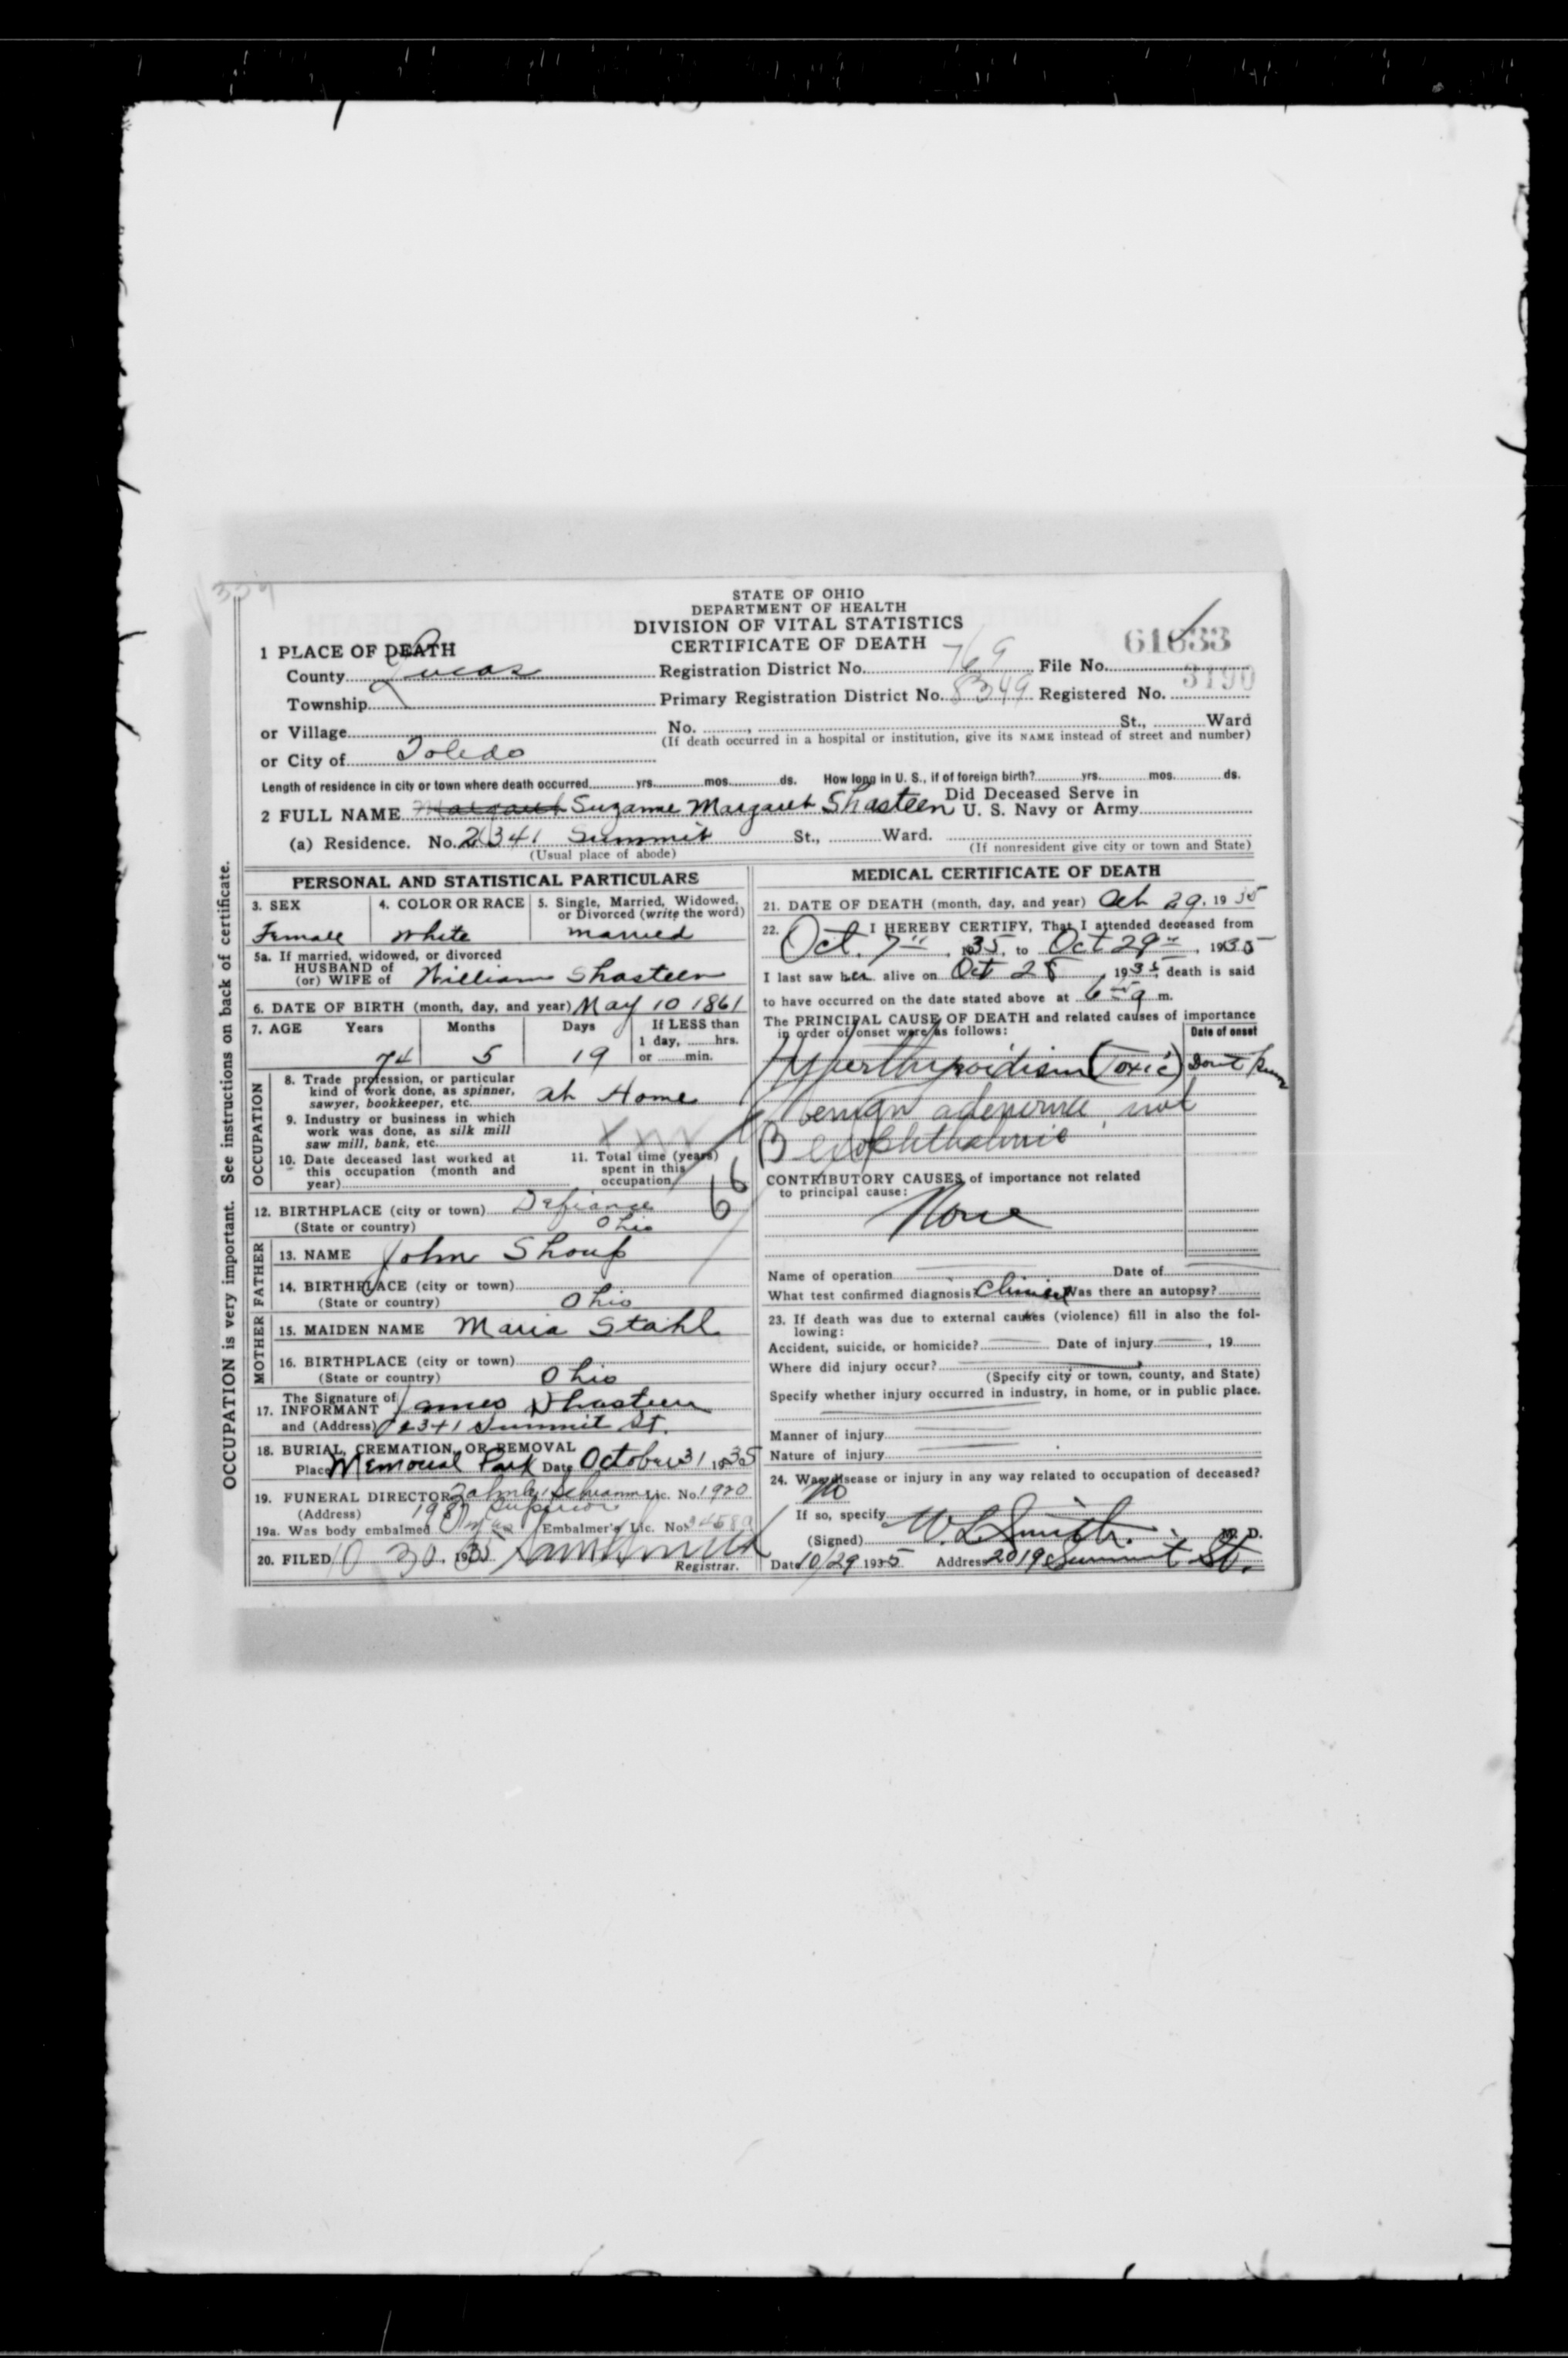 STATE OF OHIO
DEPARTMENT OF HEALTH
DIVISION OF VITAL STATISTICS
CERTIFICATE OF DEATH
61633
3190
1 PLACE OF DEATH
County Lucas Registration District No. 769 File No.
Township Primary Registration District No. 8349 Registered No.
or Village No. , St., Ward
(If death occurred in a hospital or institution, give its NAME instead of street and number)
or City of Toledo
Length of residence in city or town where death occurred yrs. mos. ds. How long in U. S., if of foreign birth? yrs. mos. ds.
2 FULL NAME Margaret Suzanne Margaret Shasteen Did Deceased Serve in U. S. Navy or Army
(a) Residence. No. 2341 Summit St., Ward.
(Usual place of abode) (If nonresident give city or town and State)
OCCUPATION is very important. See instructions on back of certificate.
PERSONAL AND STATISTICAL PARTICULARS
3. SEX 4. COLOR OR RACE 5. Single, Married, Widowed,
or Divorced (write the word)
Female White married
5a. If married, widowed, or divorced
HUSBAND of
(or) WIFE of William Shasteen
6. DATE OF BIRTH (month, day, and year) May 10 1861
7. AGE Years Months Days If LESS than
1 day, hrs.
74 5 19 or min.
OCCUPATION
8. Trade profession, or particular
kind of work done, as spinner,
sawyer, bookkeeper, etc. at Home
9. Industry or business in which
work was done, as silk mill
saw mill, bank, etc.
10. Date deceased last worked at
this occupation (month and
year)
11. Total time (years)
spent in this
occupation
66
12. BIRTHPLACE (city or town) Defiance
(State or country) Ohio
FATHER
13. NAME John Shoup
14. BIRTHPLACE (city or town)
(State or country) Ohio
MOTHER
15. MAIDEN NAME Maria Stahl
16. BIRTHPLACE (city or town)
(State or country) Ohio
The Signature of
17. INFORMANT James Shasteen
and (Address) 2341 Summit St.
18. BURIAL, CREMATION, OR REMOVAL
Place Memorial Park Date October 31 1935
19. FUNERAL DIRECTOR Lic. No. 1920
(Address) 1987 Superior
19a. Was body embalmed Embalmer's Lic. No.
20. FILED 10 30. 1935
Registrar.
MEDICAL CERTIFICATE OF DEATH
21. DATE OF DEATH (month, day, and year) Oct 29, 1935
22. I HEREBY CERTIFY, That I attended deceased from
Oct. 7th, 1935, to Oct 29th, 1935
I last saw her alive on Oct 28, 1935, death is said
to have occurred on the date stated above at 6 a m.
The PRINCIPAL CAUSE OF DEATH and related causes of importance
in order of onset were as follows: Date of onset
Hyperthyroidism (Toxic) Don't know
Benign adenoma not
exophthalmic
CONTRIBUTORY CAUSES of importance not related
to principal cause:
None
Name of operation Date of
What test confirmed diagnosis? Clinical Was there an autopsy?
23. If death was due to external causes (violence) fill in also the fol-
lowing:
Accident, suicide, or homicide? Date of injury , 19
Where did injury occur?
(Specify city or town, county, and State)
Specify whether injury occurred in industry, in home, or in public place.
Manner of injury
Nature of injury
24. Was disease or injury in any way related to occupation of deceased?
No
If so, specify
(Signed) W. L. Smith. M. D.
Date 10/29 1935 Address 2019 Summit St.